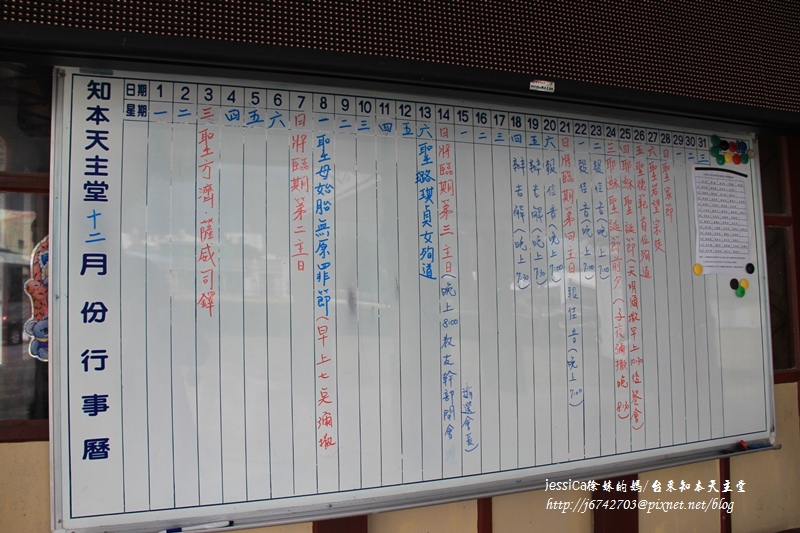 知本天主堂十二月份行事曆
日期 1 2 3 4 5 6 7 8 9 10 11 12 13 14 15 16 17 18 19 20 21 22 23 24 25 26 27 28 29 30 31
星期 一 二 三 四 五 六 日 一 二 三 四 五 六 日 一 二 三 四 五 六 日 一 二 三 四 五 六 日 一 二 三
聖方濟.薩威司鐸
將臨期第二主日
聖母始胎無原罪節(早上七点彌撒
聖璐琪貞女殉道
將臨期第三主日(晚上8:00教友幹部開會
改選會長)
辦告解(晚上7:30
辦告解(晚上7:30
報佳音(晚上7:00
將臨期第四主日 報佳音(晚上7:00
報佳音(晚上7:00
報佳音(晚上7:00
耶穌聖誕節前夕(子夜彌撒晚8:30
耶穌聖誕節(天明彌撒早上10:30 後餐會)
聖德範首位殉道
聖若望宗徒
聖家節
jessica徐妹的媽/台東知本天主堂
http://j6742703@pixnet.net/blog